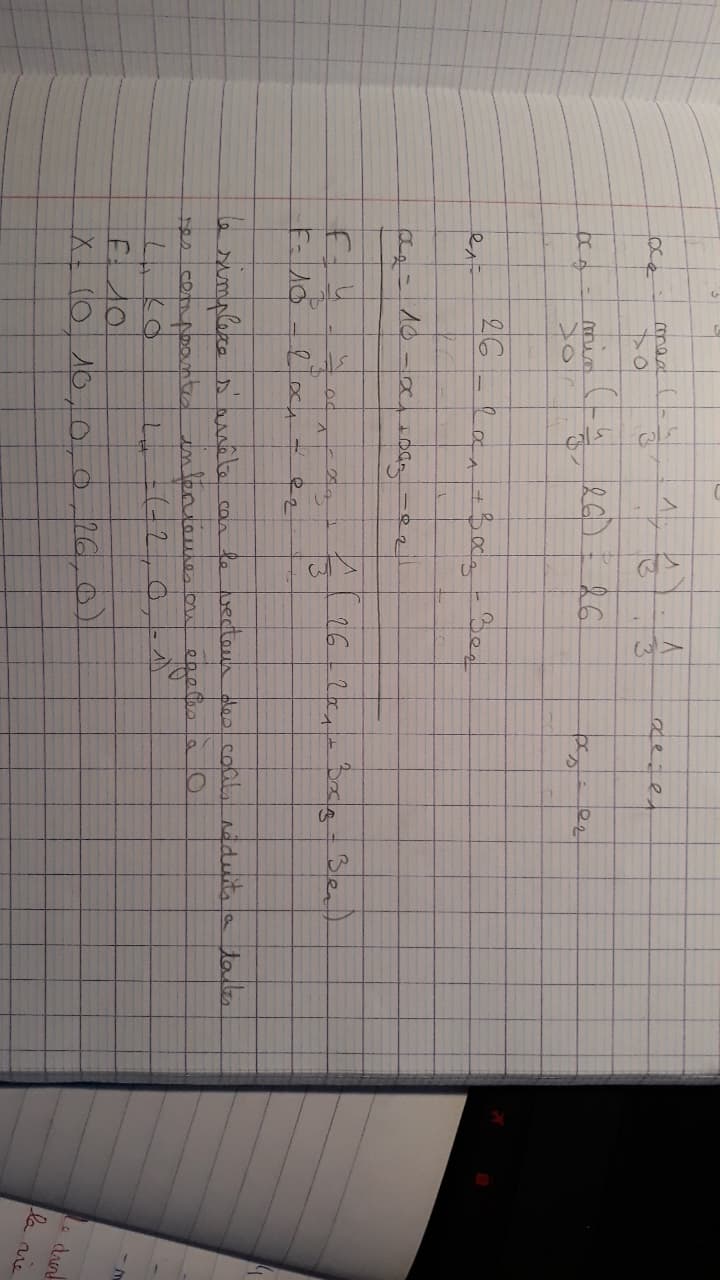 xe = max (-4/3, -1, 1/3) = 1/3 xe = e1
>0
xs = min (-4/3, 26) = 26 xs = e2
>0
e1 = 26 - 2x1 + 3x3 - 3e2
x2 = 10 - x1 + x3 - e2
F = 4/3 - 4/3 x1 - x3 + 1/3 (26 - 2x1 + 3x3 - 3e2)
F = 10 - 2x1 - e2
Le simplexe s'arrête car le vecteur des coûts réduits a toutes
ses composantes inférieures ou égales à 0
LH ≤ 0 LH = (-2, 0, -1)
F = 10
X = (0, 10, 0, 0, 26, 0)
le
la vie